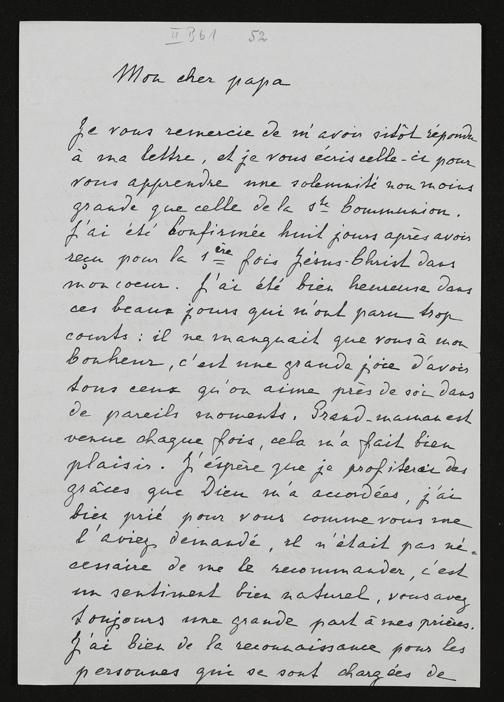 II B b 1 52
Mon cher papa
Je vous remercie de m'avoir sitôt répondu
à ma lettre, et je vous écris celle-ci pour
vous apprendre une solemnité non moins
grande que celle de la Ste Communion.
J'ai été Confirmée huit jours après avoir
reçu pour la 1ère fois Jésus-Christ dans
mon coeur. J'ai été bien heureuse dans
ces beaux jours qui m'ont paru trop
courts : il ne manquait que vous à mon
bonheur, c'est une grande joie d'avoir
tous ceux qu'on aime près de soi dans
de pareils moments. Grand-maman est
venue chaque fois, cela m'a fait bien
plaisir. J'éspère que je profiterai des
grâces que Dieu m'a accordées, j'ai
bien prié pour vous comme vous me
l'aviez demandé, il n'était pas né-
cessaire de me le recommander, c'est
un sentiment bien naturel, vous avez
toujours une grande part à mes prières.
J'ai bien de la reconnaissance pour les
personnes qui se sont chargées de